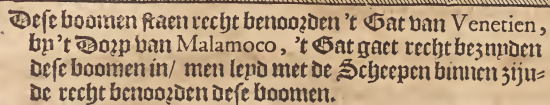 Dese boomen staen recht benoorden 't Gat van Venetien,
by 't Dorp van Malamoco, 't Gat gaet recht bezuyden
dese boomen in/ men leyd met de Scheepen binnen zijn-
de recht benoorden dese boomen.